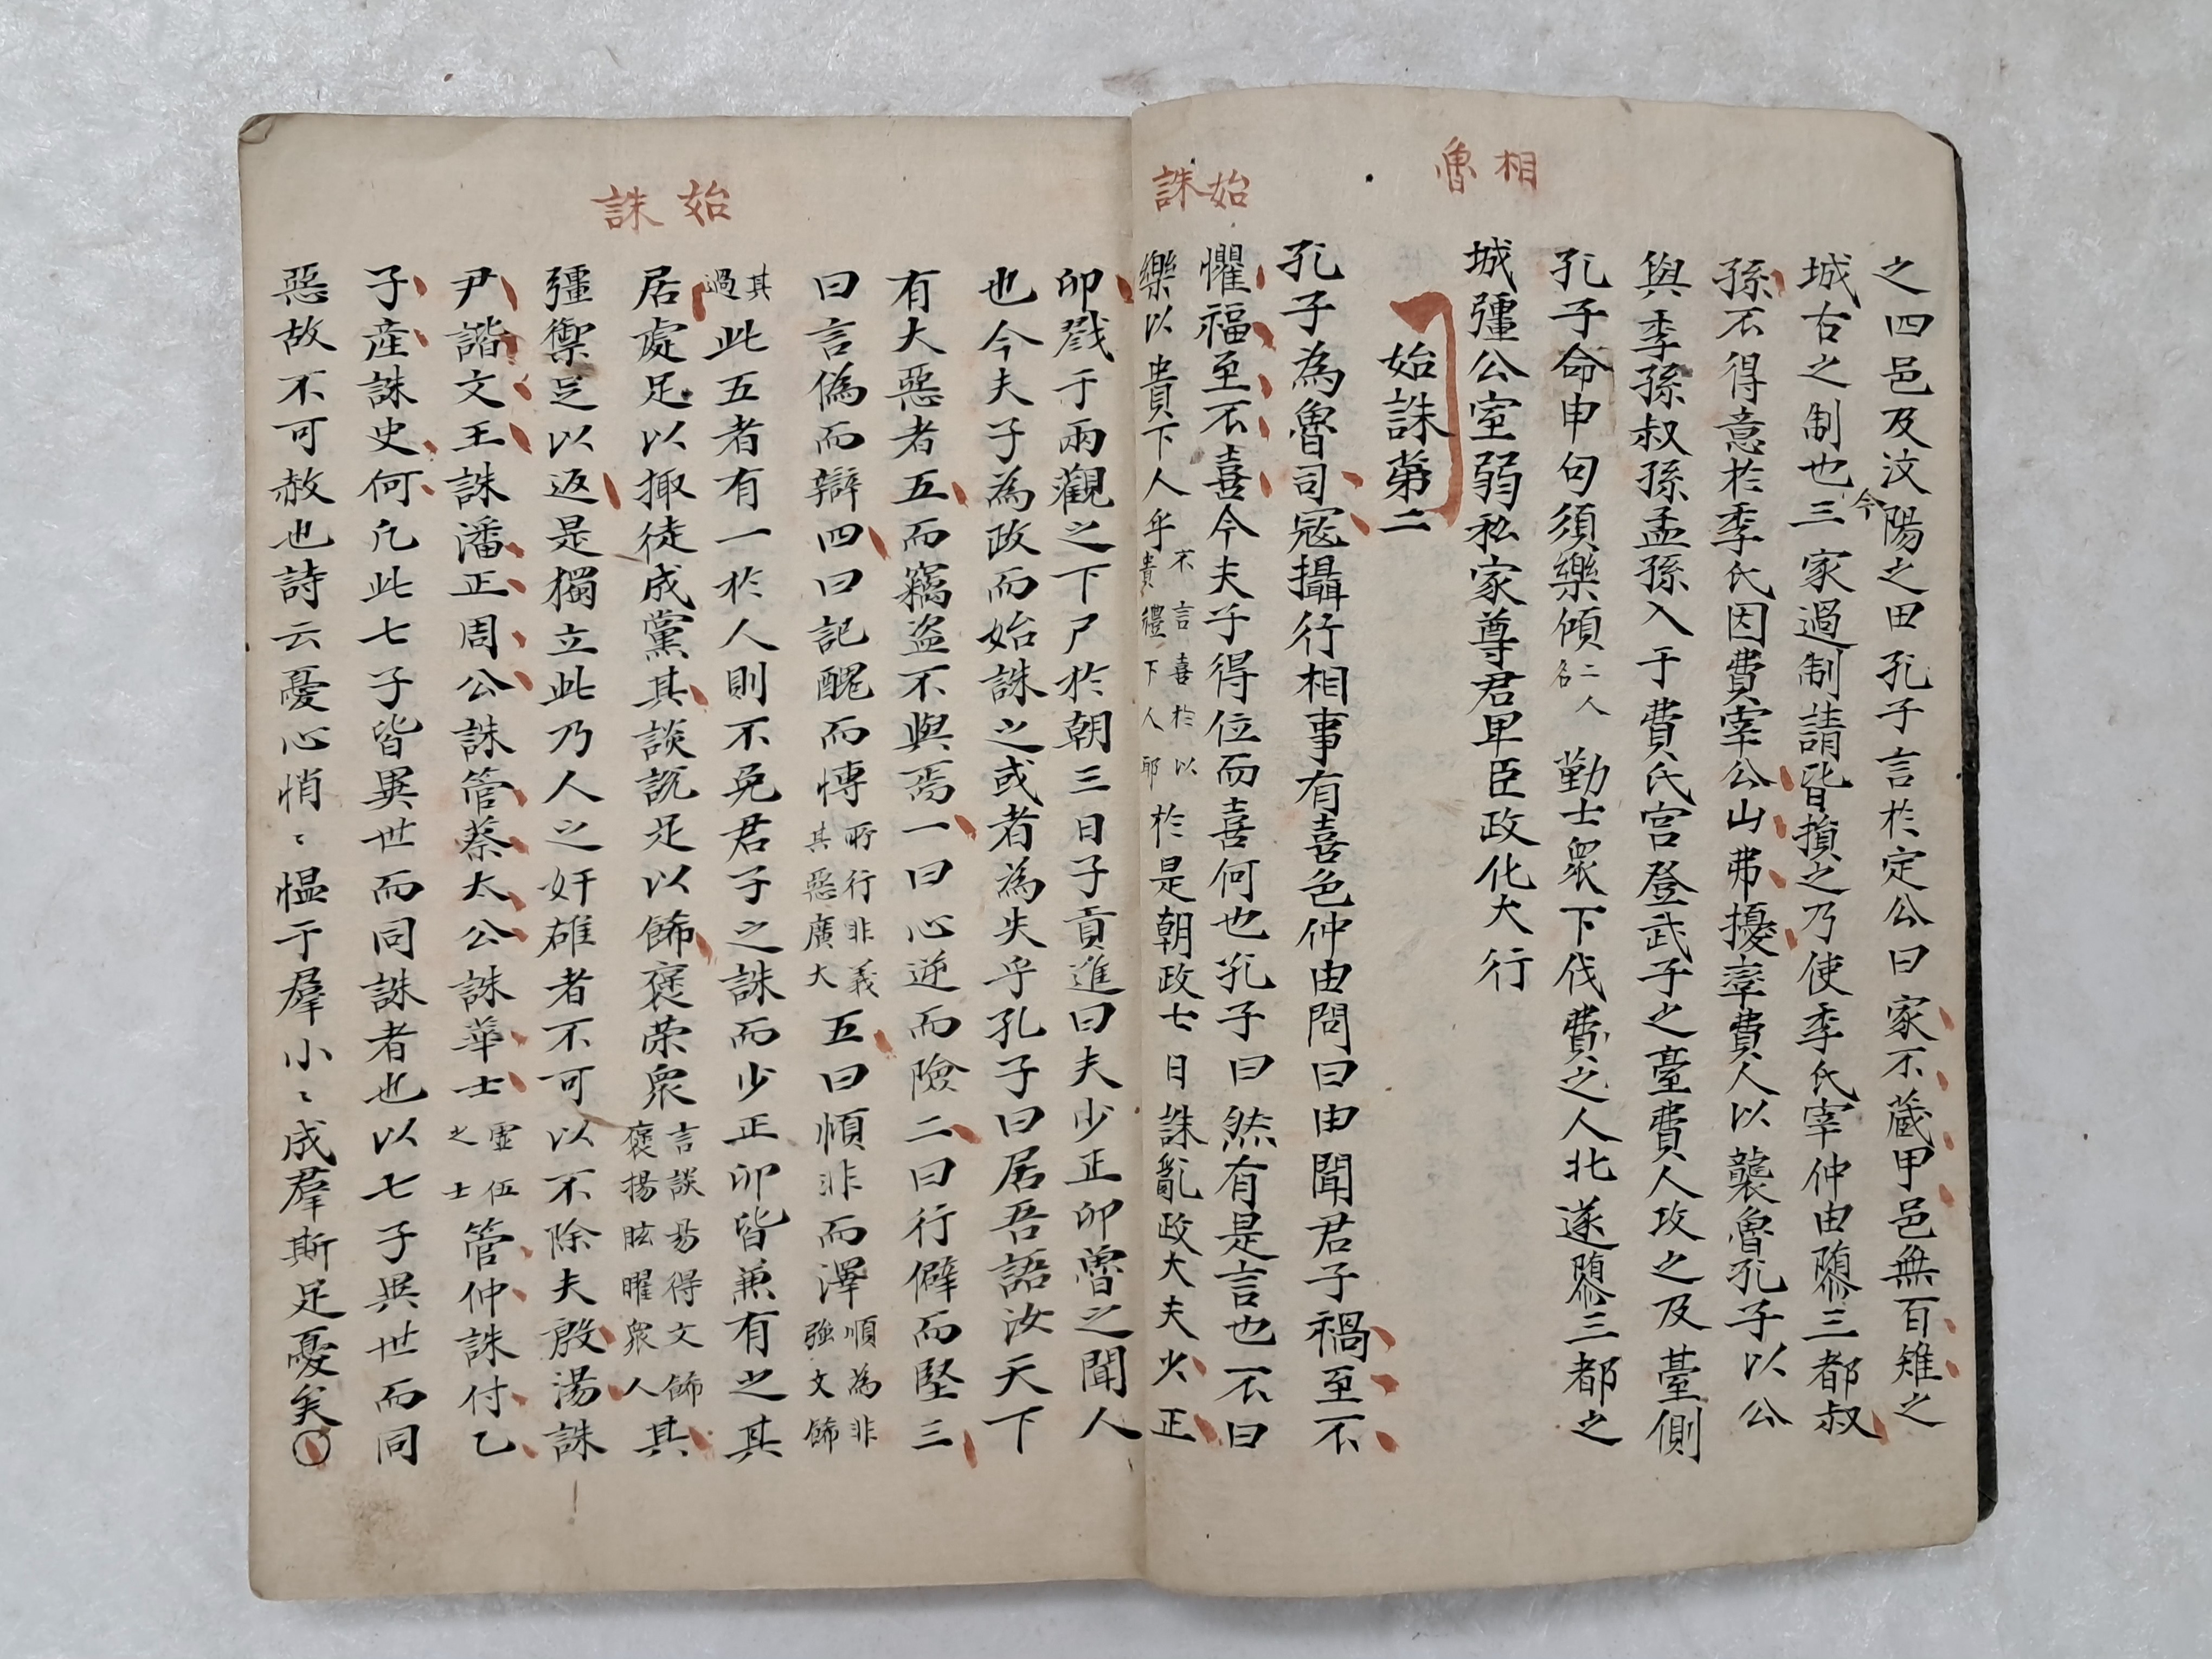 相魯
始誅
之四邑及汶陽之田孔子言於定公曰家不蔵甲邑無百雉之
城古之制也今三家過制請皆損之乃使季氏宰仲由隳三都叔
孫不得意於季氏因費宰公山弗擾率費人以襲魯孔子以公
與季孫叔孫孟孫入于費氏宮登武子之臺費人攻之及臺側
孔子命申句須樂傾二人名勤士衆下伐費之人北遂隳三都之
城彊公室弱私家尊君卑臣政化大行
始誅第二
孔子為魯司寇攝行相事有喜色仲由問曰由聞君子禍至不
懼福至不喜今夫子得位而喜何也孔子曰然有是言也不曰
樂以貴下人乎不言喜於以貴禮下人耶於是朝政七日誅亂政大夫少正
始誅
卯戮于兩觀之下尸於朝三日子貢進曰夫少正卯魯之聞人
也今夫子為政而始誅之或者為失乎孔子曰居吾語汝天下
有大惡者五而竊盗不與焉一曰心逆而險二曰行僻而堅三
曰言偽而辯四曰記醜而愽所行非義其惡廣大五曰順非而澤順為非強文餙
其過此五者有一於人則不免君子之誅而少正卯皆兼有之其
居處足以掫徒成黨其談説足以餙褒荣衆言談易得文餙褒揚眩曜衆人其
彊禦足以返是獨立此乃人之奸雄者不可以不除夫殷湯誅
尹諧文王誅潘正周公誅管蔡太公誅華士虛伍之士管仲誅付乙
子産誅史何凡此七子皆異世而同誅者也以七子異世而同
惡故不可赦也詩云憂心悄〻愠于羣小〻成羣斯足憂矣